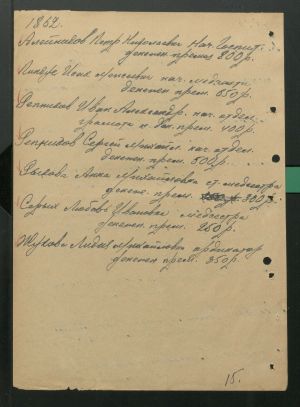 1862.
Алейников Петр Николаевич Нач. Госпит.
денежн. премия 800 р.
Линде Исак Моисеевич нач. медчасти
денежн прем. 650 р.
Репников Иван Александр. нач. отдел.
грамота и ден. прем. 400 р.
Репников Сергей Михайл. нач. отдел.
денежн прем. 500 р.
Рыкова Анна Михайловна ст. медсестра
денеж. прем. 300 р.
Серых Любовь Ивановна медсестра
денежн прем. 250 р.
Жукова Лидия Михайловна ординатор
денежн прем. 350 р.
15.